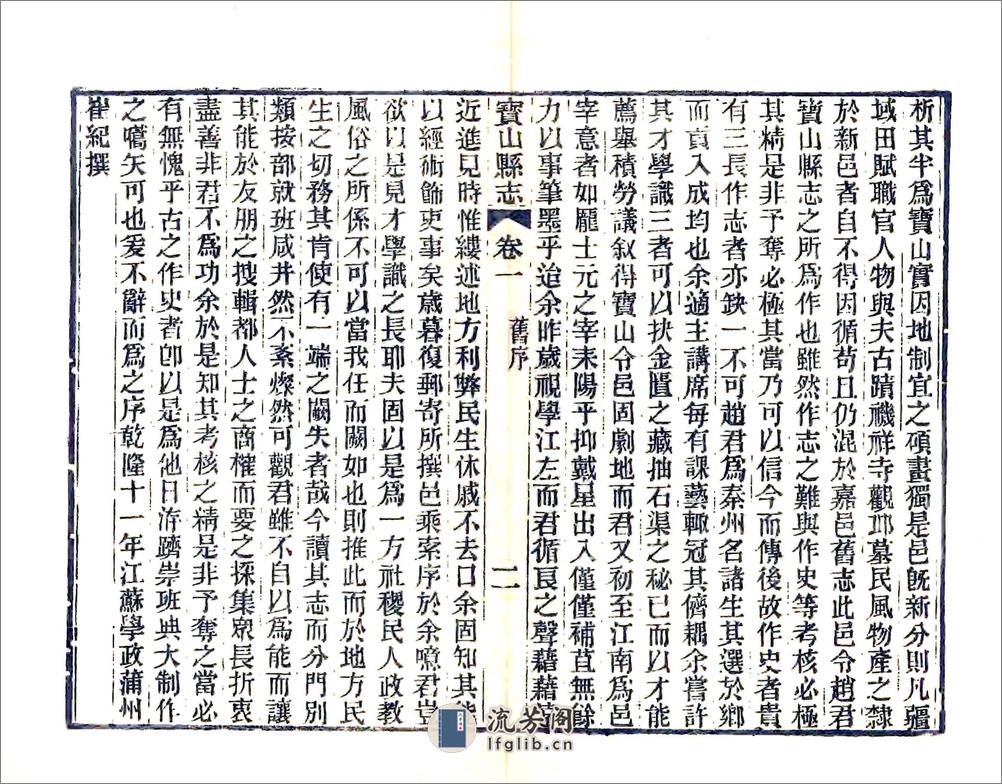 析其半爲寶山實因地制宜之碩畫獨是邑旣新分則凡疆
域田賦職官人物與夫古蹟禨祥寺觀邱墓民風物產之隸
於新邑者自不得因循苟且仍混於嘉邑舊志此邑令趙君
寶山縣志之所爲作也雖然作志之難與作史等考核必極
其精是非予奪必極其當乃可以信今而傳後故作史者貴
有三長作志者亦缺一不可趙君爲秦州名諸生其選於鄉
而貢入成均也余適主講席每有課藝輒冠其儕耦余嘗許
其才學識三者可以抉金匱之藏抽石渠之秘已而以才能
薦舉積勞議叙得寶山令邑固劇地而君又初至江南爲邑
宰意者如龐士元之宰耒陽乎抑戴星出入僅僅補苴無餘
力以事筆墨乎迨余昨歲視學江左而君循良之聲藉藉
寶山縣志 卷一 舊序 二
近進見時惟縷述地方利弊民生休戚不去口余固知其能
以經術飾吏事矣歲暮復郵寄所撰邑乘索序於余噫君豈
欲以是見才學識之長耶夫固以是爲一方社稷民人政教
風俗之所係不可以當我任而闕如也則推此而於地方民
生之切務其肯使有一端之闕失者哉今讀其志而分門別
類按部就班咸井然不紊燦然可觀君雖不自以爲能而讓
其能於友朋之搜輯都人士之商榷而要之採集衆長折衷
盡善非君不爲功余於是知其考核之精是非予奪之當必
有無愧乎古之作史者卽以是爲他日洊躋崇班典大制作
之嚆矢可也爰不辭而爲之序乾隆十一年江蘇學政蒲州
崔紀撰
流芳阁
lfglib.cn